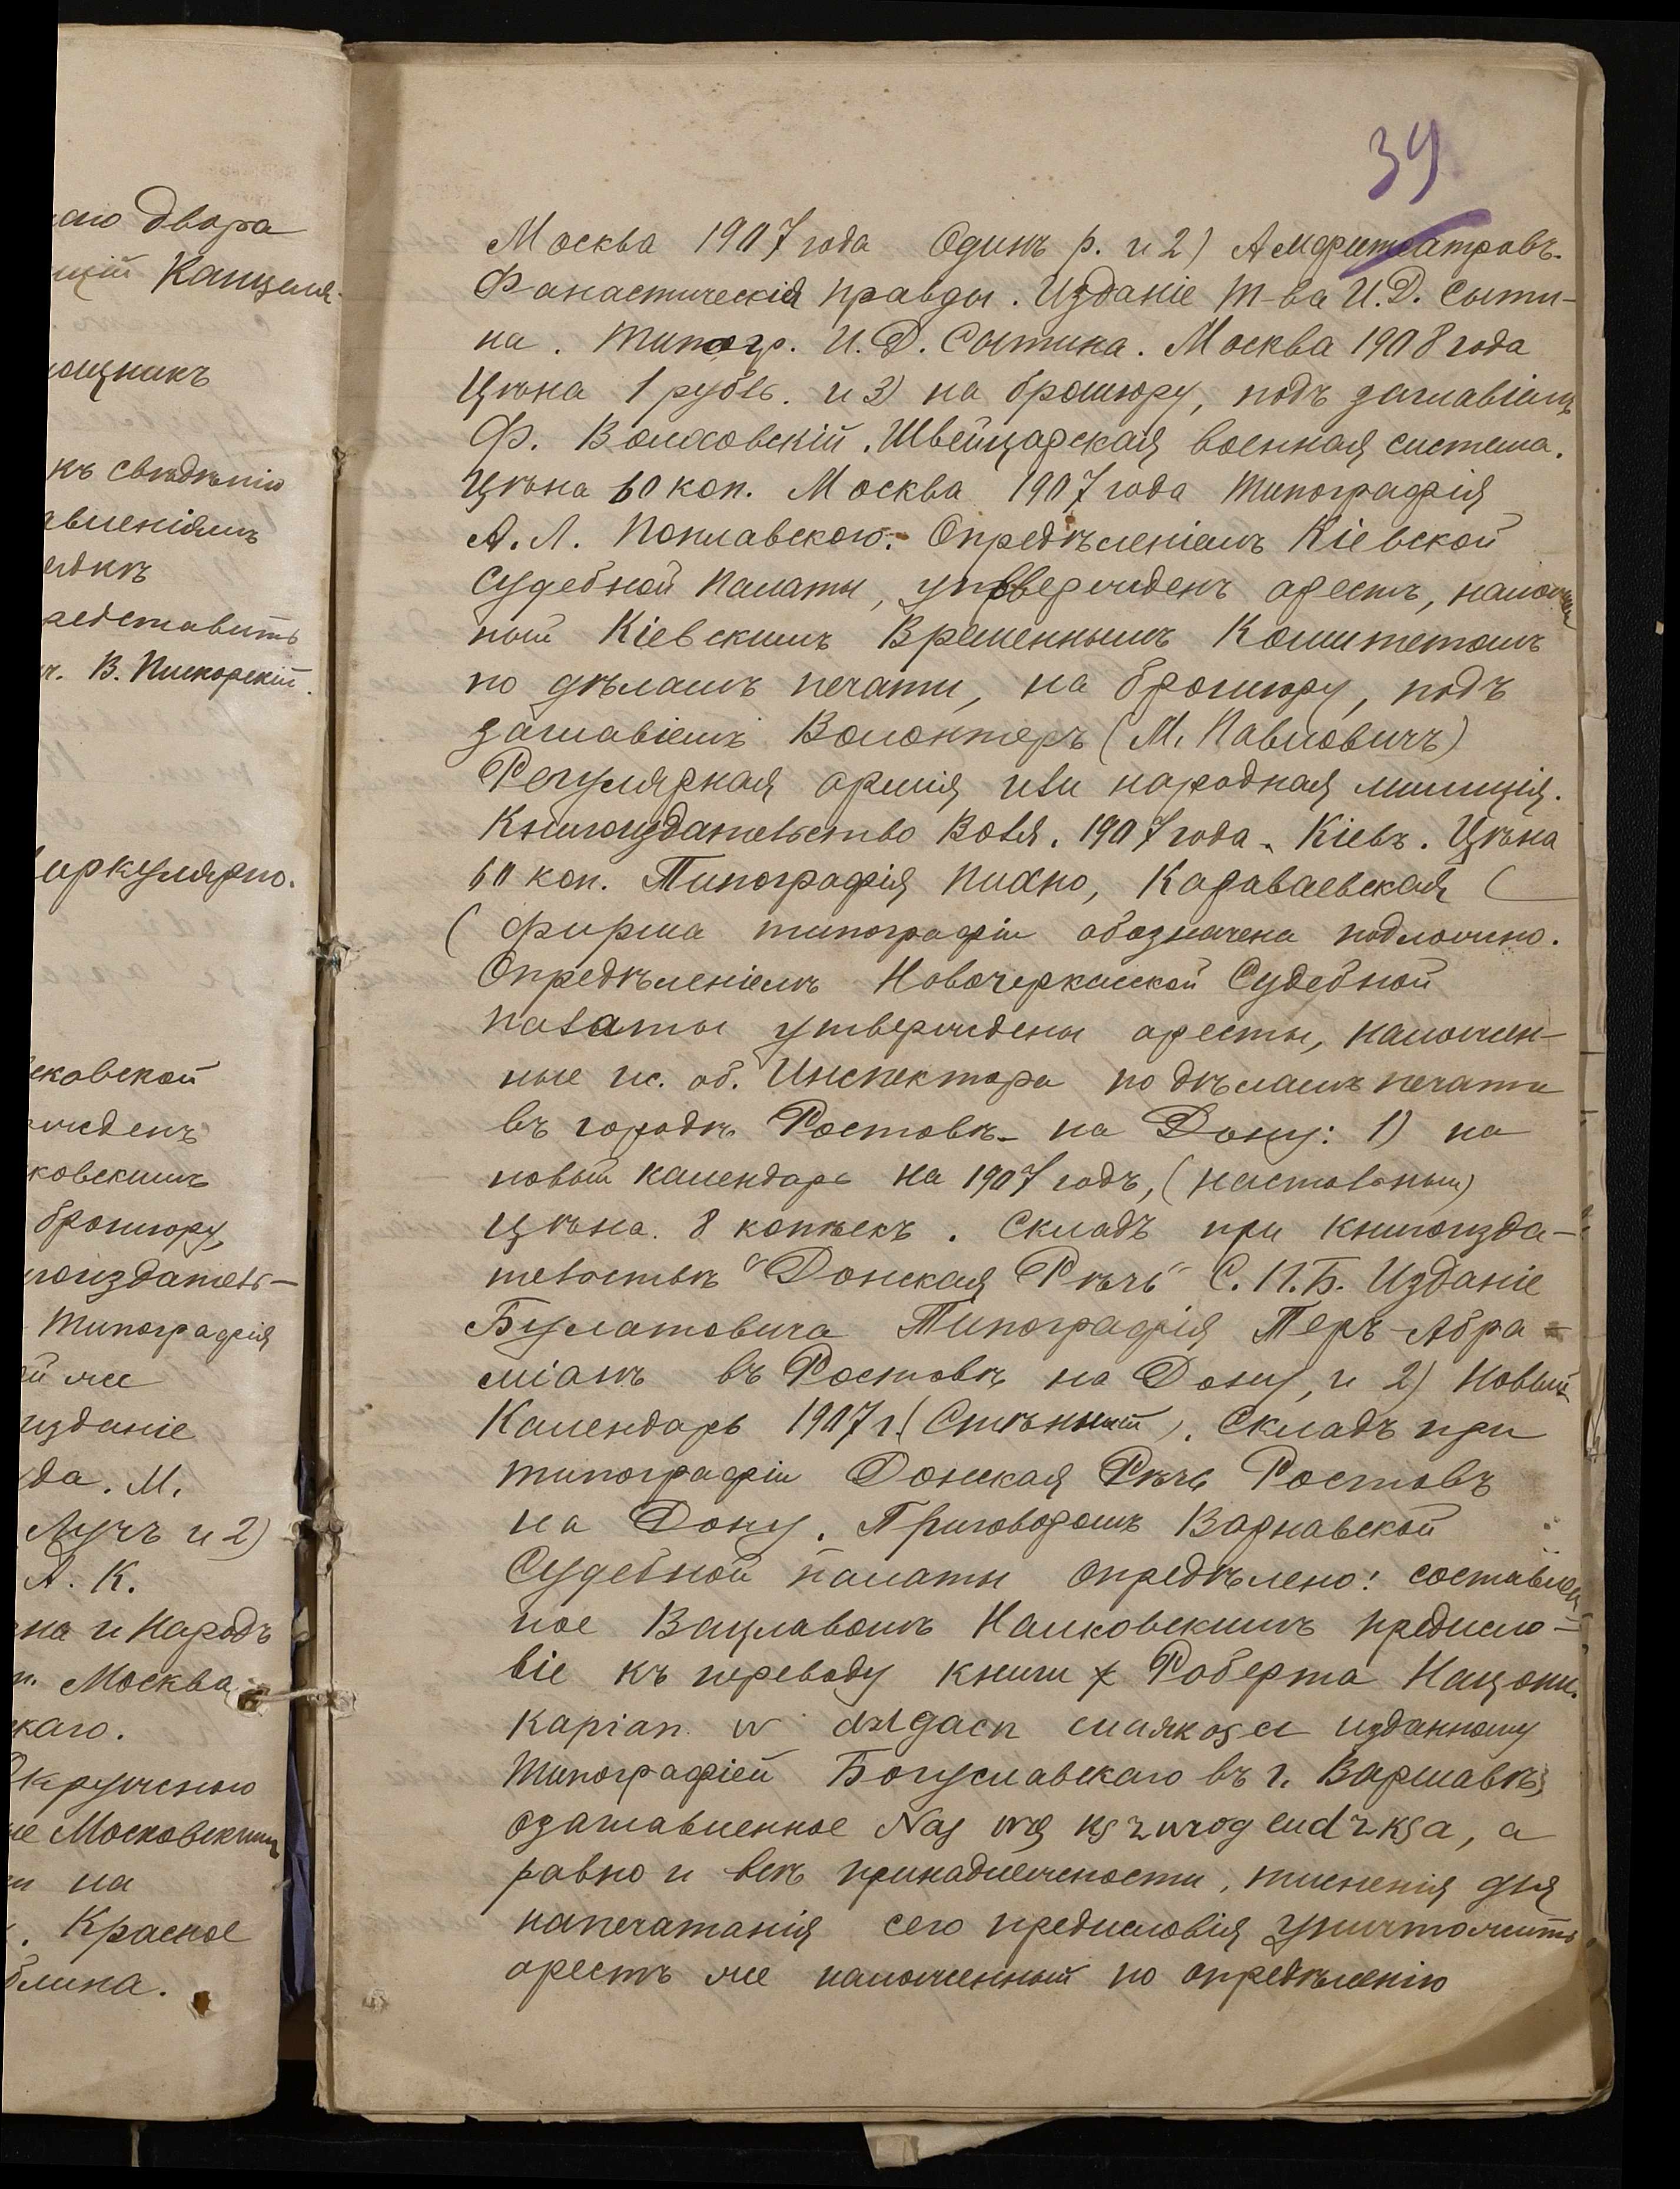 аго двора
щій Канцеля-
ощникъ
къ свѣдѣнію
авленіямъ
ядкѣ
редставить
ч. В. Пискорскій.
циркулярно.
сковской
ржденъ
ковскимъ
брошюру,
гоиздатель-
Типографія
ой же
изданіе
да. М.
Лучъ и 2)
А. К.
на и Народъ
п. Москва
скаго.
Окружного
ые Московскимъ
на
. Красное
блина.
39
Москва 1907 года Одинъ р. и 2) Амфитеатровъ.
Фанастическія правды. Изданіе Т-ва И.Д. Сыти-
на. Типогр. И.Д. Сытина. Москва 1908 года
Цѣна 1 рубль. и 3) на брошюру, подъ заглавіемъ
Ф. Волховскій. Швейцарская военная система.
Цѣна 60 коп. Москва 1907 года Типографія
А.Л. Поплавского. Опредѣленіемъ Кіевской
Судебной Палаты, утвержденъ арестъ, наложен
ный Кіевскимъ Временнымъ Комитетомъ
по дѣламъ печати, на брошюру, подъ
заглавіемъ Волонтеръ (М. Павловичъ)
Регулярная армія или народная милиція.
Книгоиздательство Воля. 1907 года. Кіевъ. Цѣна
60 коп. Типографія Пихно, Караваевская (
( фирма типографіи обозначена подложно.
Опредѣленіемъ Новочеркасской Судебной
палаты утверждены аресты, наложен-
ные ис. об. Инспектора по дѣламъ печати
въ городѣ Ростовѣ-на Дону: 1) на
новый календарь на 1907 годъ, (настольный)
цѣна. 8 копѣекъ. Складъ при книгоизда-
тельствѣ "Донская Рѣчь" С.П.Б. Изданіе
Булатовича Типографія Теръ-Абра-
міанъ въ Ростовѣ на Дону, и 2) Новый
Календарь 1907 г. (Стѣнный). Складъ при
типографіи Донская Рѣчь Ростовъ
на Дону. Приговоромъ Варшавской
Судебной палаты опредѣлено: составлен-
ное Вацлавомъ Налковскимъ предисло-
віе къ переводу книги Роберта
Kapłan w изданному
Типографіей Богуславскаго въ г. Варшавѣ,
озаглавленное Naj, а
равно и всѣ принадлежности, тисненія для
напечатанія сего предисловія уничтожить
арестъ же наложенный по опредѣленію